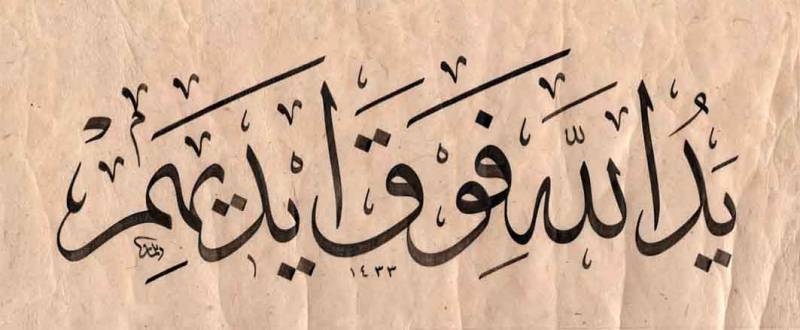 يَدُ اللَّهِ فَوْقَ اَيْدِيهِمْ
١٤٣٣